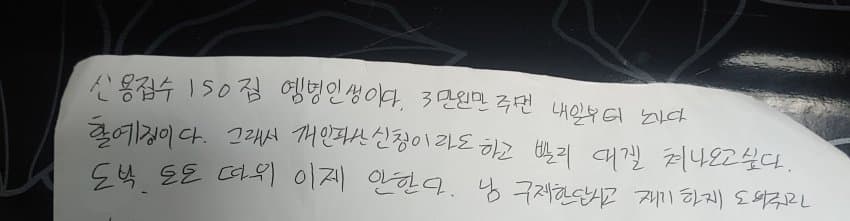 신용점수 150점 엠병인생이다. 3만원만 주면 내일부터 노가다
할예정이다. 그래서 개인파산신청이라도 하고 빨리 대길 쳐나오고싶다.
도박, 토토 따위 이제 안한다. 낭 구제한답시고 재기하게 도와주라